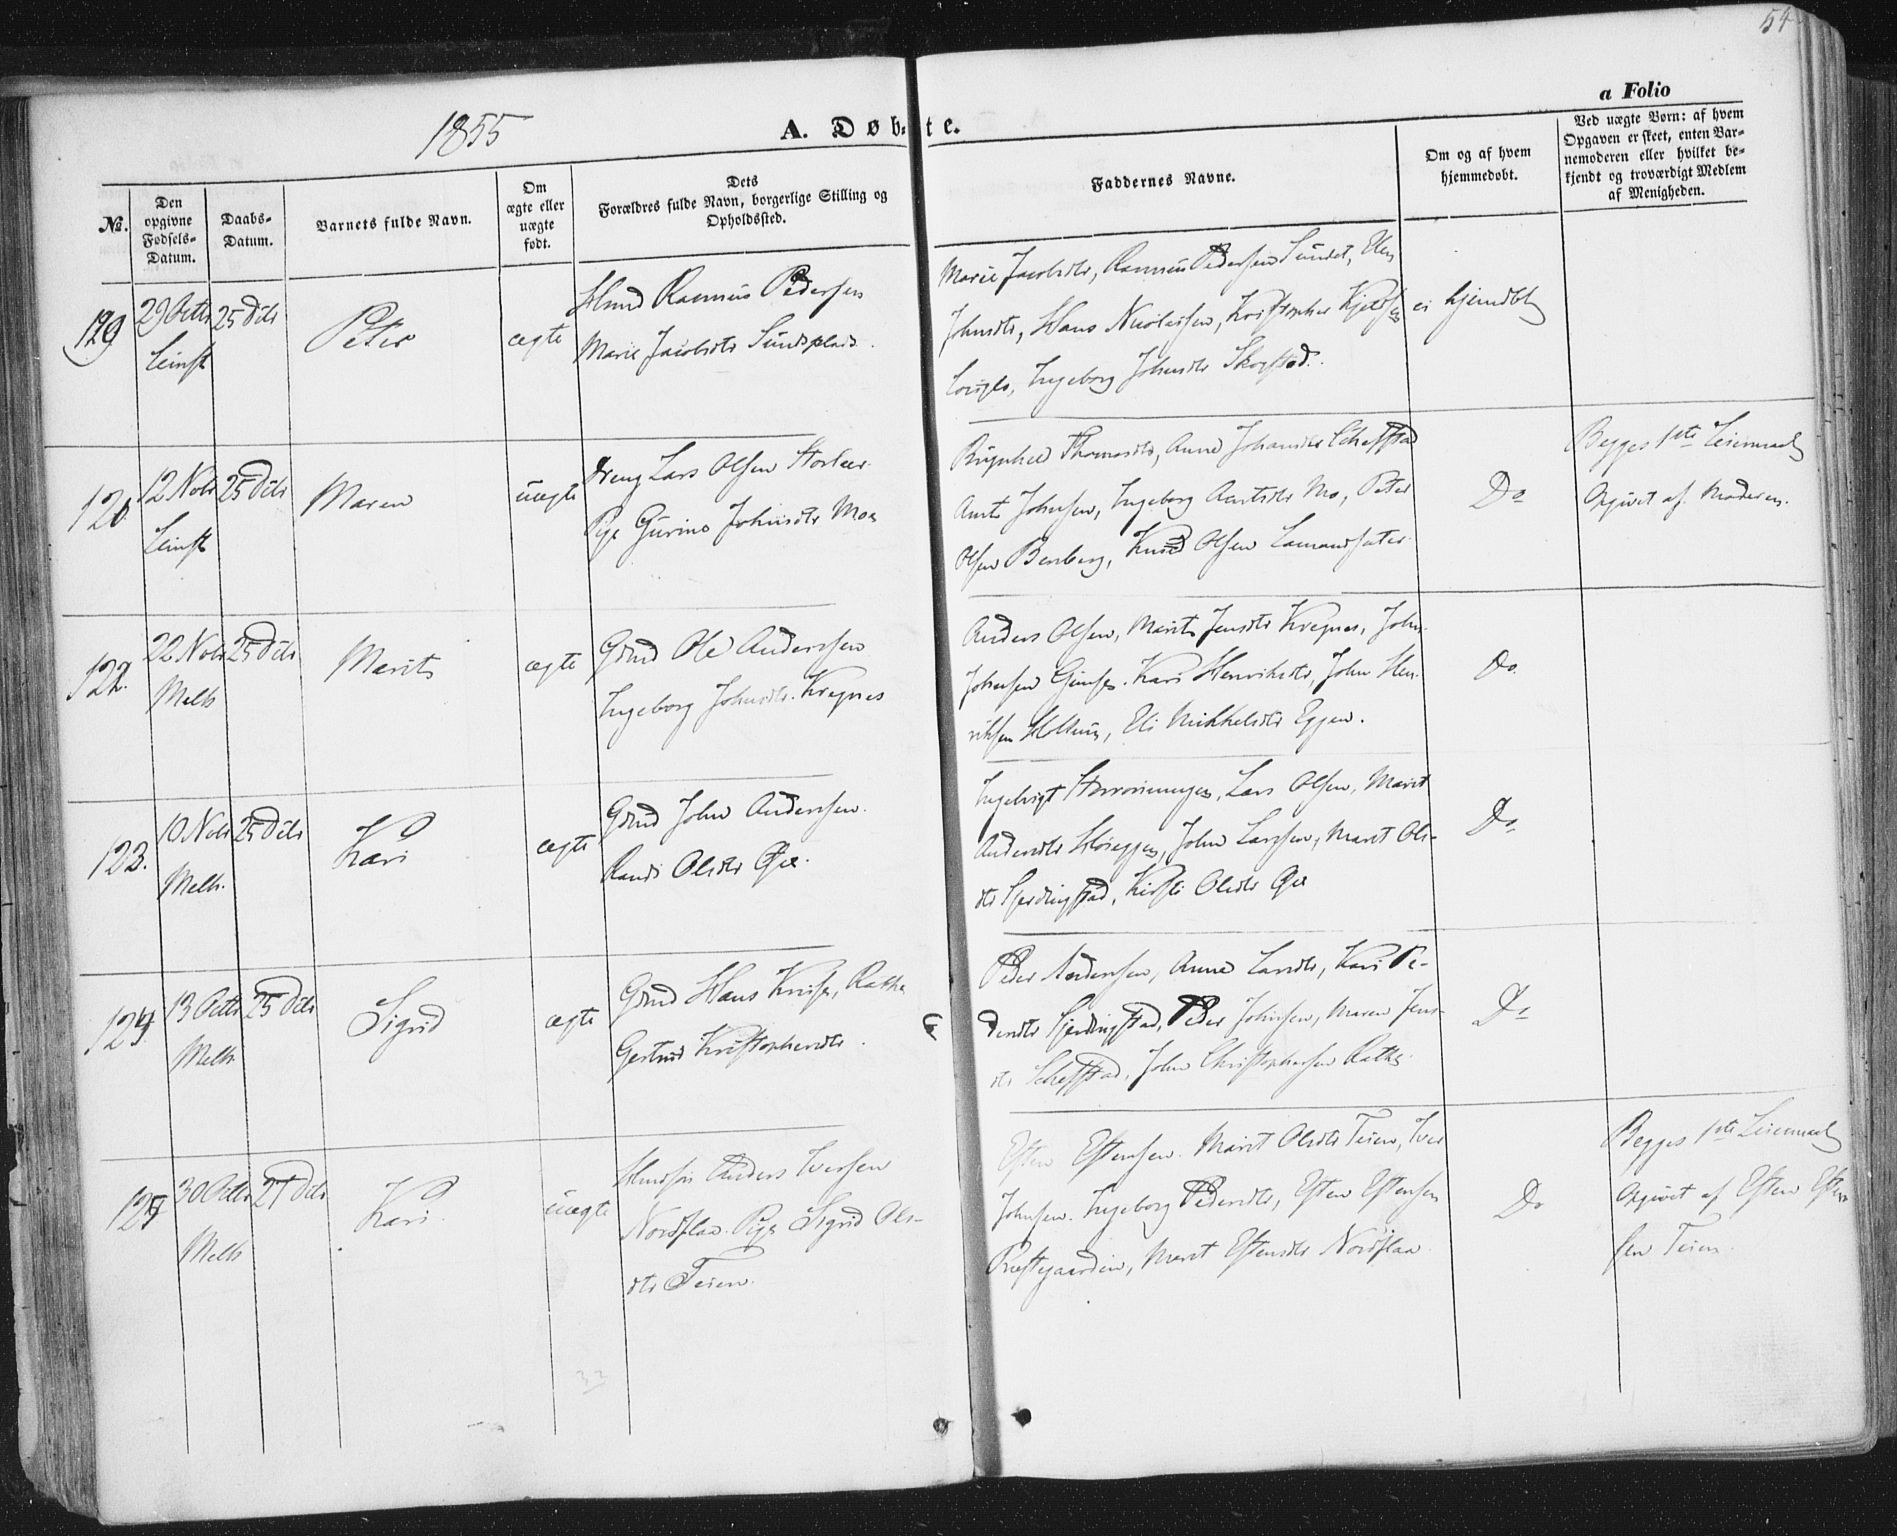 54
1855
A. Døbte.
a Folio
№.
Den opgivne Fødsels-Datum.
Daabs-Datum.
Barnets fulde Navn.
Om ægte eller uægte født.
Dets Forældres fulde Navn, borgerlige Stilling og Opholdssted.
Faddernes Navne.
Om og af hvem hjemmedøbt.
Ved uægte Børn: af hvem Opgaven er skeet, enten Barnemoderen eller hvilket bekjendt og troværdigt Medlem af Menigheden.
29 Octbr 25 Dcbr
Leinst
Peter
ægte
Hmd Rasmus Pedersen
Marie Jacobsdtr Sundsplads.
Marie Jacobsdtr, Rasmus Pedersen Sundet,
Johnsdtr, Hans Nicolaisen, Kristopher
Ingeborg Johnsdtr Skogstad.
ei hjemdbt
12 Nobr 25 Dcbr
Leinst
Maren
uægte
Dreng Lars Olsen
Pige Gurine Johnsdtr Moe
Thomasdtr, Anne Johansdtr
Arnt Johnsen, Ingeborg Arntsdtr Mo, Peter
Olsen Benberg, Knud Olsen
Do
Begges 1ste Leiermaal
Opgivet af Moderen.
122.
22 Nobr 25 Dcbr
Melh
Marit
ægte
Grmd Ole Andersen
Ingeborg Johnsdtr. Kregnes
Anders Olsen, Marit Jensdtr Kregnes, John
Johnsen Gimse. Kari Henriksdtr, John Hen-
riksen Eli Mikkelsdtr Eggen.
Do.
123.
10 Nobr 25 Dcbr
Melh.
Kari
ægte
Grmd John Andersen.
Randi Olsdtr Øie.
Lars Olsen, Marit
Andersdtr Høieggen, John Larssen, Marit Ols-
dtr Gjerdingstad, Kirsti Olsdtr Øie
Do
124.
13 Octbr 25 Dcbr
Melh
Sigrid
ægte
Grmd Hans
Gertrud Kristophersdtr.
Peder Andersen, Anne Larsdtr, Kari Pe-
dersdtr Gjerdingstad, Peder Johnsen, Maren Jens-
dtr John Christophersen
Do
125
30 Octbr 27 Dcbr
Melh
Kari.
uægte
Anders Iversen
Nordflaa. Pige Sigrid Ols-
dtr Teien.
Esten Estensen. Marit Olsdtr Teien, Iver
Johnsen. Ingeborg Pedersdtr, Esten Estensen
Præstegaarden, Marit Estensdtr Nordflaa.
Do
Begges 1ste Leiermaal
Opgivet af Esten Esten-
sen Teien
33